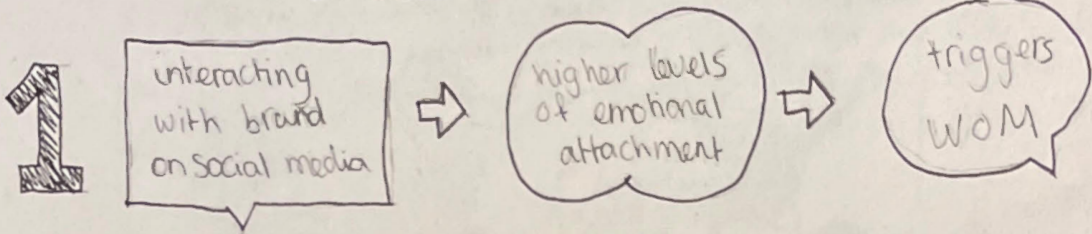 1
interacting
with brand
on social media
higher levels
of emotional
attachment
triggers
WOM